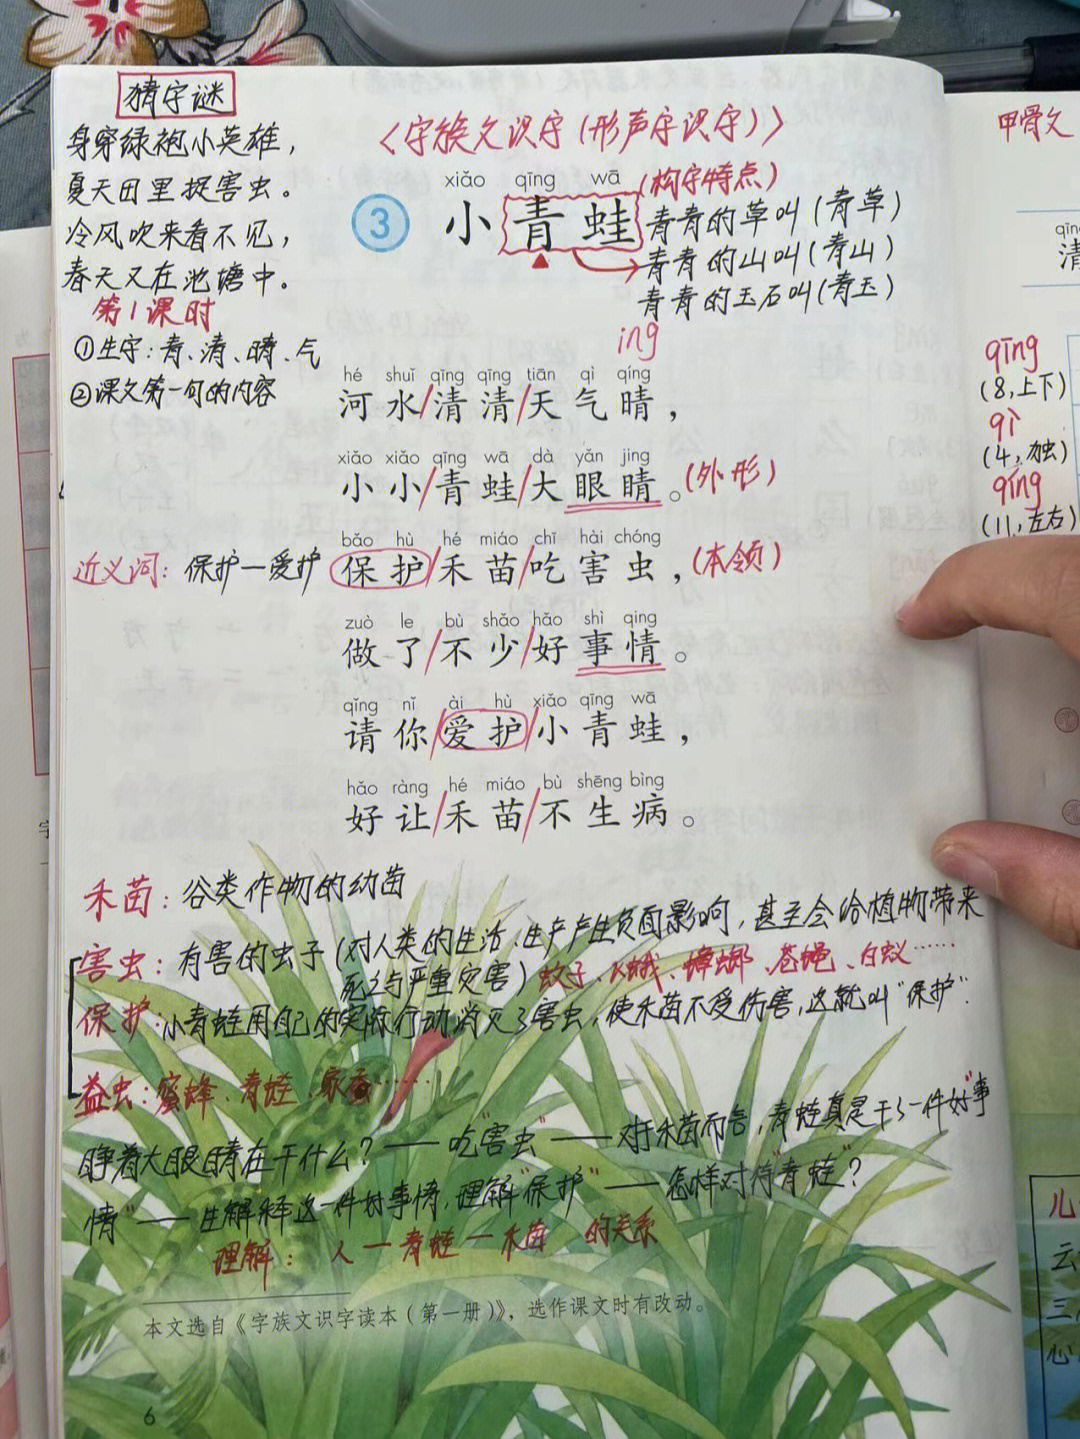 猜字谜
身穿绿袍小英雄，
夏天田里捉害虫。
冷风吹来看不见，
春天又在池塘中。
〈字族文识字(形声字识字)〉
xiǎo qīng wā
3 小青蛙
(构字特点)
青青的草叫(青草)
青青的山叫(青山)
青青的玉石叫(青玉)
第1课时
①生字：青、清、晴、气
②课文第一句的内容
ing
hé shuǐ qīng qīng tiān qì qíng
河水/清清/天气晴，
xiǎo xiǎo qīng wā dà yǎn jing
小小/青蛙/大眼睛。(外形)
bǎo hù hé miáo chī hài chóng
近义词：保护—爱护 保护/禾苗/吃害虫，(本领)
zuò le bù shǎo hǎo shì qing
做了/不少/好事情。
qǐng nǐ ài hù xiǎo qīng wā
请你/爱护/小青蛙，
hǎo ràng hé miáo bù shēng bìng
好让/禾苗/不生病。
禾苗：谷类作物的幼苗
害虫：有害的虫子(对人类的生活、生产产生负面影响，甚至会给植物带来
死亡与严重灾害)蚊子、飞蛾、蟑螂、苍蝇、白蚁……
保护：小青蛙用自己的实际行动消灭了害虫，使禾苗不受伤害，这就叫“保护”.
益虫：蜜蜂、青蛙、家蚕……
睁着大眼睛在干什么？——吃“害虫”——对于禾苗而言，青蛙真是干了一件“好事
情”——生解释这一件好事情，理解“保护”——怎样对待“青蛙”？
理解：人—青蛙—禾苗 的关系
本文选自《字族文识字读本（第一册）》，选作课文时有改动。
6
甲骨文
qīng
清
qīng
(8,上下)
qì
(4,独)
qíng
(11,左右)
儿
云
三
心